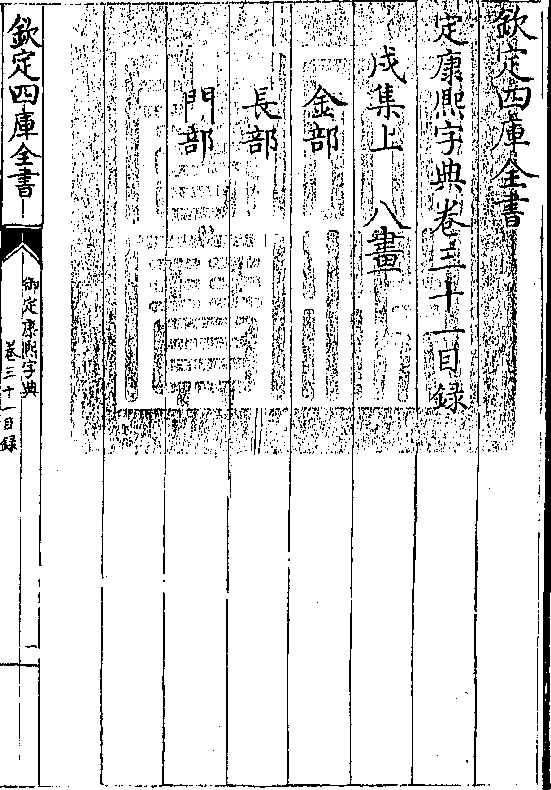 欽定四庫全書
定康熙字典卷三十一目録
戌集上 八畫
金部
長部
門部
欽定四庫全書
御定康熙字典
卷三十一目録
一